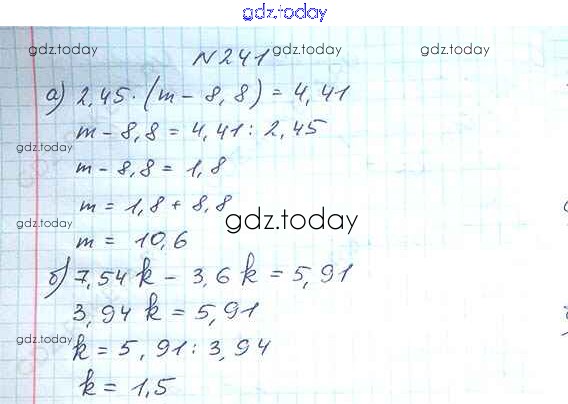 gdz.today
N241
gdz.today gdz.today gdz.today
а) 2,45·(m - 8,8) = 4,41
m - 8,8 = 4,41 : 2,45
m - 8,8 = 1,8
gdz.today
m = 1,8 + 8,8
gdz.today
m = 10,6
б) 7,54k - 3,6k = 5,91
3,94k = 5,91
gdz.today
k = 5,91 : 3,94
k = 1,5